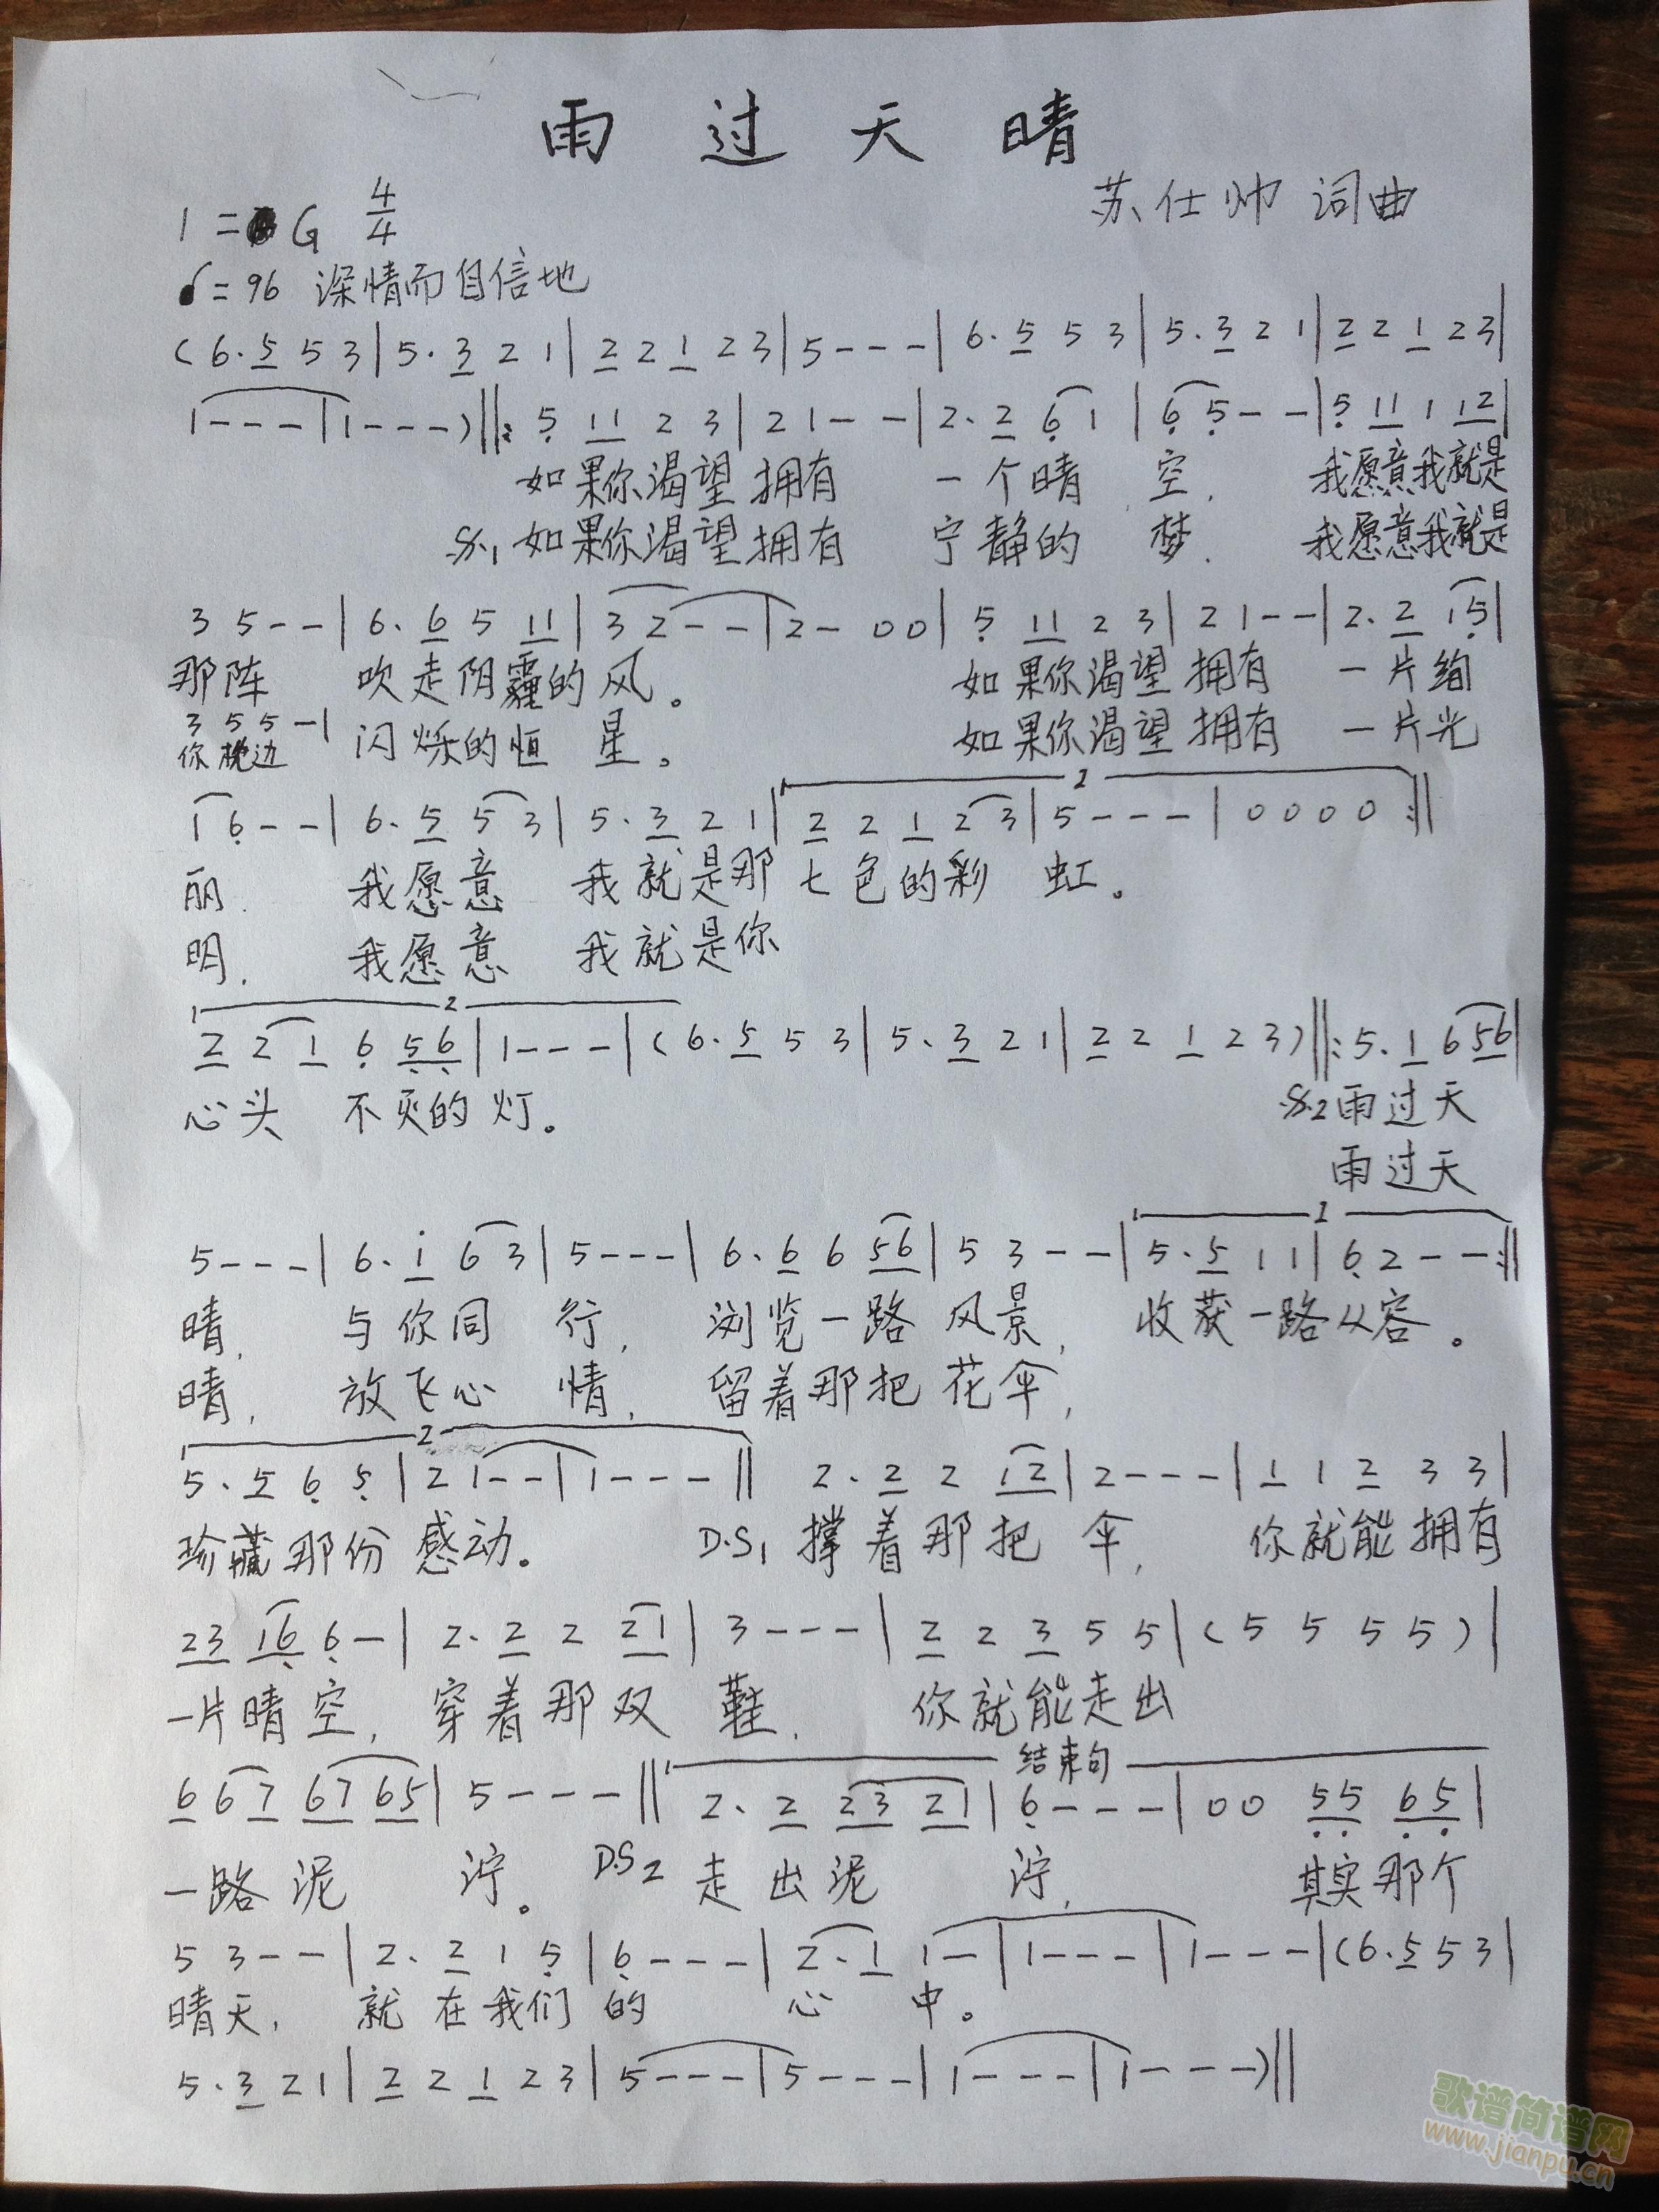 雨过天晴
1=G 4/4
苏仕帅 词曲
♩=96 深情而自信地
(6.5 5 3|5.3 2 1|2 2 1 2 3|5---|6.5 5 3|5.3 2 1|2 2 1 2 3|
1---|1---)‖:5 11 2 3|2 1--|2.2 6 1|6 5--|5 11 1 12|
如果你渴望拥有 一个晴空, 我愿意我就是
S.1如果你渴望拥有 宁静的梦, 我愿意我就是
3 5--|6.6 5 11|3 2--|2-00|5 11 2 3|2 1--|2.2 15|
那阵 吹走阴霾的风。 如果你渴望拥有 一片绚
3 5 5-|
你枕边 闪烁的恒星。 如果你渴望拥有 一片光
1
1 6--|6.5 5 3|5.3 2 1|2 2 1 2 3|5---|0000:‖
丽, 我愿意 我就是那七色的彩虹。
明, 我愿意 我就是你
2
2 2 1 6 56|1---|(6.5 5 3|5.3 2 1|2 2 1 2 3)‖:5.1 6 56|
心头 不灭的灯。 S.2雨过天
雨过天
1
5---|6.1 6 3|5---|6.6 6 56|5 3--|5.5 1 1|6 2--:‖
晴, 与你同行, 浏览一路风景, 收获一路从容。
晴, 放飞心情, 留着那把花伞,
2
5.5 6 5|2 1--|1---‖ 2.2 2 12|2---|1 1 2 3 3|
珍藏那份感动。 D.S1 撑着那把伞, 你就能拥有
23 16 6-|2.2 2 21|3---|2 2 3 5 5|(5 5 5 5)|
一片晴空, 穿着那双鞋, 你就能走出
结束句
6 6 7 67 65|5---‖2.2 23 21|6---|00 55 65|
一路泥泞。 D.S2 走出泥泞, 其实那个
5 3--|2.2 1 5|6---|2.1 1-|1---|1---|(6.5 5 3|
晴天, 就在我们的 心中。
5.3 2 1|2 2 1 2 3|5---|5---|1---|1---)‖
歌谱简谱网
www.jianpu.cn